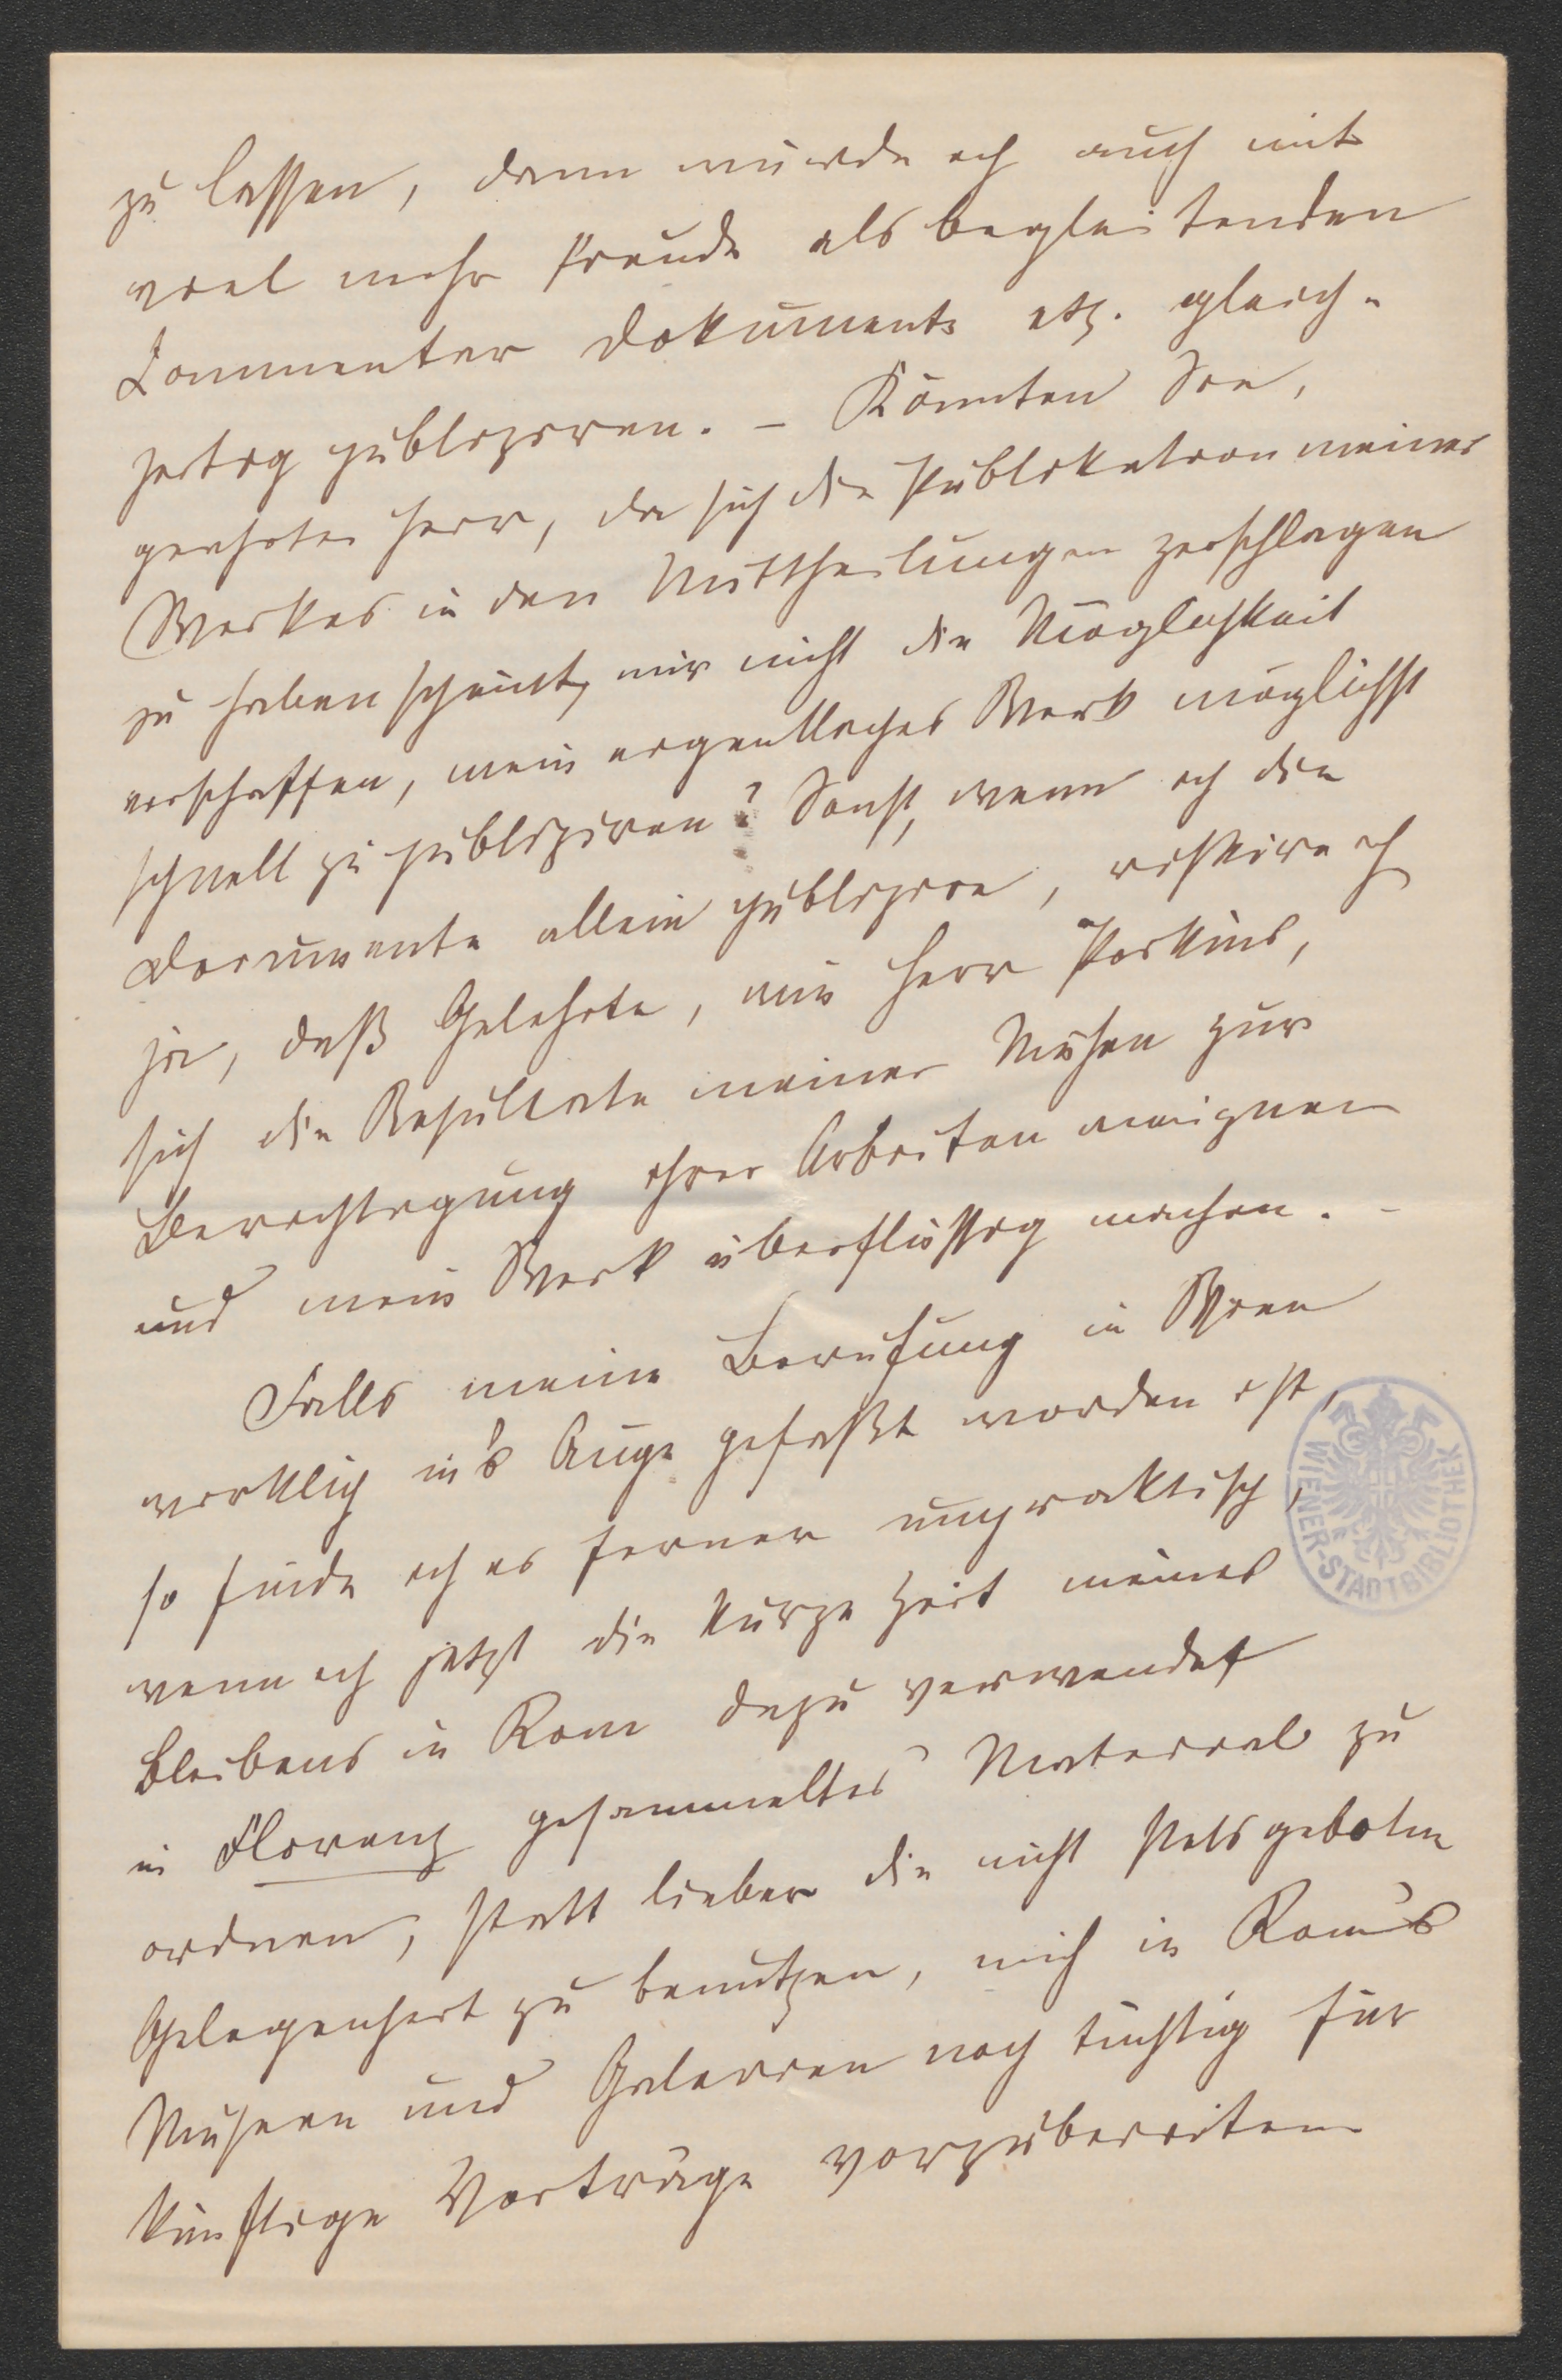 zu lassen, dann würde ich auch mit
viel mehr Freude als begleitenden
Commentar Dokumente etz. gleich-
zeitig publiziren. – Könnten Sie,
geehrter Herr, da sich die Publikation meines
Werkes in den Mittheilungen zerschlagen
zu haben scheint, mir nicht die Möglichkeit
verschaffen, mein eigentliches Werk möglichst
schnell zu publiziren? Sonst, wenn ich die
Documente allein publizire, riskire ich
ja, daß Gelehrte, wie Herr Perkins,
sich die Resultate meiner Mühen zur
Berechtigung ihrer Arbeiten aneignen
und mein Werk überflüssig machen. –
Falls meine Berufung in Wien
wirklich in's Auge gefaßt worden ist,
so finde ich es ferner unpraktisch,
wenn ich jetzt die kurze Zeit meines
Bleibens in Rom dazu verwendet
in Florenz gesammeltes Material zu
ordnen, statt lieber die nicht stets gebotene
Gelegenheit zu benutzen, mich in Rom's
Museen und Galerien noch tüchtig für
künftige Vorträge vorzubereiten
WIENER-STADTBIBLIOTHEK